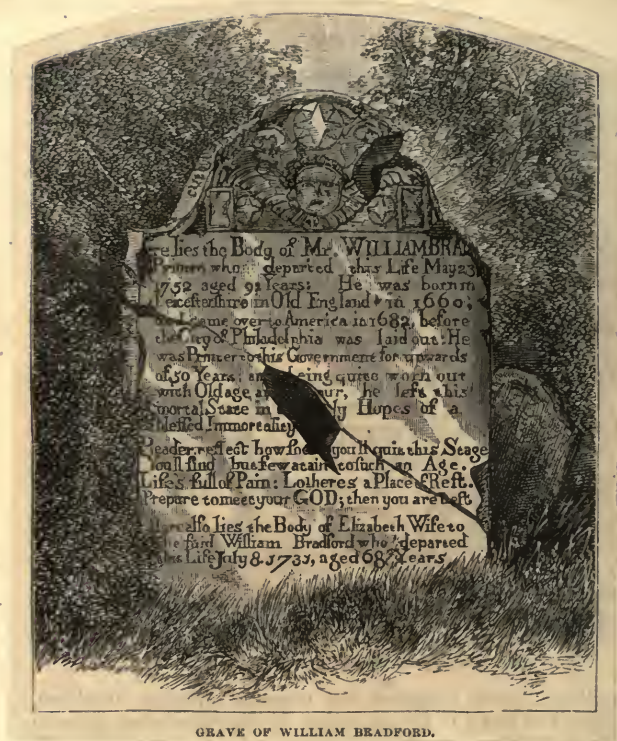 re lies the Body of Mr. WILLIAM BRAD
Printer who departed this Life May 23
1752 aged 92 Years: He was born in
Leicestershire in Old England in 1660;
and came over to America in 1682, before
the City of Philadelphia was laid out: He
was Printer to this Government for upwards
of 50 Years; and being quite worn out
with Old age and, he left this
mortal State in Hopes of a
blessed Immortality
Reader, reflect how you'll quit this Stage
You'll find but few atain to such an Age.
Life's full of Pain: Lo here's a Place of Rest.
Prepare to meet your GOD; then you are blest
Here also lies the Body of Elizabeth Wife to
the said William Bradford who departed
this Life July 8. 1731, aged 68 Years
GRAVE OF WILLIAM BRADFORD.